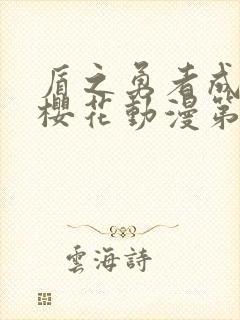 盾之勇者成
櫻花動漫第
雲海詩